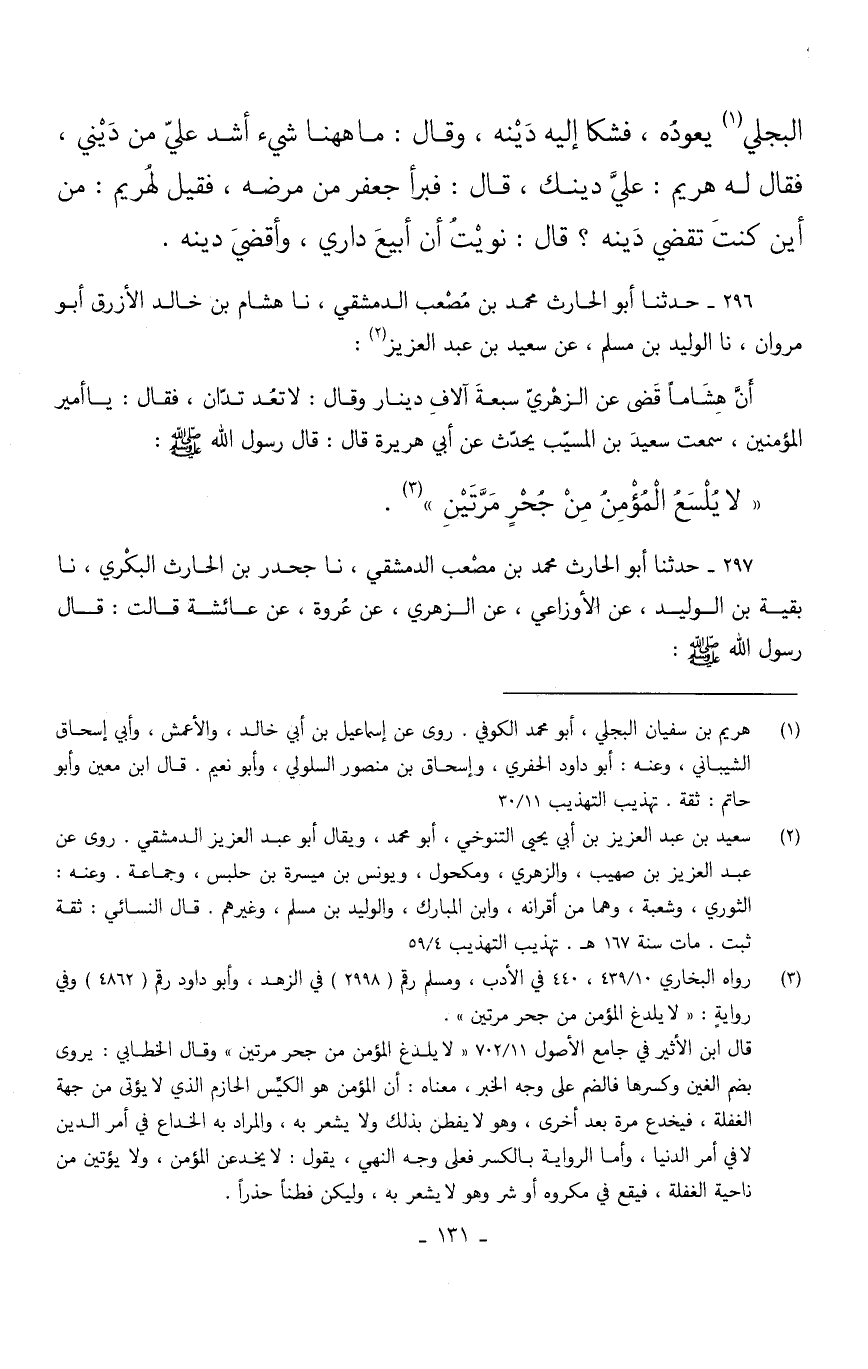 البجلي(١) يعودُه ، فشكا إليه دَيْنه ، وقال : ماههنا شيء أشد عليّ من دَيْني ،
فقال له هريم : عليَّ دينك ، قال : فبرأ جعفر من مرضه ، فقيل لهُريم : من
أين كنتَ تقضي دَينه ؟ قال : نويْتُ أن أبيعَ داري ، وأقضيَ دينه .
٢٩٦ ـ حدثنا أبو الحارث محمد بن مُصْعب الدمشقي ، نا هشام بن خالد الأزرق أبو
مروان ، نا الوليد بن مسلم ، عن سعيد بن عبد العزيز(٢) :
أنَّ هِشَاماً قَضى عن الزهْريّ سبعةَ آلافِ دينار وقال : لاتعُد تدّان ، فقال : ياأمير
المؤمنين ، سمعت سعيدَ بن المسيّب يحدّث عن أبي هريرة قال : قال رسول الله ﷺ :
« لا يُلْسَعُ الْمُؤْمِنُ مِنْ جُحْرٍ مَرَّتَيْنِ »(٣) .
٢٩٧ ـ حدثنا أبو الحارث محمد بن مصْعب الدمشقي ، نا جحدر بن الحارث البكْري ، نا
بقية بن الوليد ، عن الأوزاعي ، عن الزهري ، عن عُروة ، عن عائشة قالت : قال
رسول الله ﷺ :
(١) هريم بن سفيان البجلي ، أبو محمد الكوفي . روى عن إسماعيل بن أبي خالد ، والأعمش ، وأبي إسحاق
الشيباني ، وعنه : أبو داود الحفري ، وإسحاق بن منصور السلولي ، وأبو نعيم . قال ابن معين وأبو
حاتم : ثقة . تهذيب التهذيب ٣٠/١١
(٢) سعيد بن عبد العزيز بن أبي يحيى التنوخي ، أبو محمد ، ويقال أبو عبد العزيز الدمشقي . روى عن
عبد العزيز بن صهيب ، والزهري ، ومكحول ، ويونس بن ميسرة بن حلبس ، وجماعة . وعنه :
الثوري ، وشعبة ، وهما من أقرانه ، وابن المبارك ، والوليد بن مسلم ، وغيرهم . قال النسائي : ثقة
ثبت . مات سنة ١٦٧ هـ . تهذيب التهذيب ٥٩/٤
(٣) رواه البخاري ٤٣٩/١٠ ، ٤٤٠ في الأدب ، ومسلم رقم ( ٢٩٩٨ ) في الزهد ، وأبو داود رقم ( ٤٨٦٢ ) وفي
روايةٍ : « لايلدغ المؤمن من جحر مرتين » .
قال ابن الأثير في جامع الأصول ٧٠٢/١١ « لايلدغ المؤمن من جحر مرتين » وقال الخطابي : يروى
بضم الغين وكسرها فالضم على وجه الخبر ، معناه : أن المؤمن هو الكيِّس الحازم الذي لايؤتى من جهة
الغفلة ، فيخدع مرة بعد أخرى ، وهو لايفطن بذلك ولا يشعر به ، والمراد به الخداع في أمر الدين
لافي أمر الدنيا ، وأما الرواية بالكسر فعلى وجه النهي ، يقول : لايخدعن المؤمن ، ولا يؤتين من
ناحية الغفلة ، فيقع في مكروه أو شر وهو لايشعر به ، وليكن فطناً حذراً .
ـ ١٣١ ـ